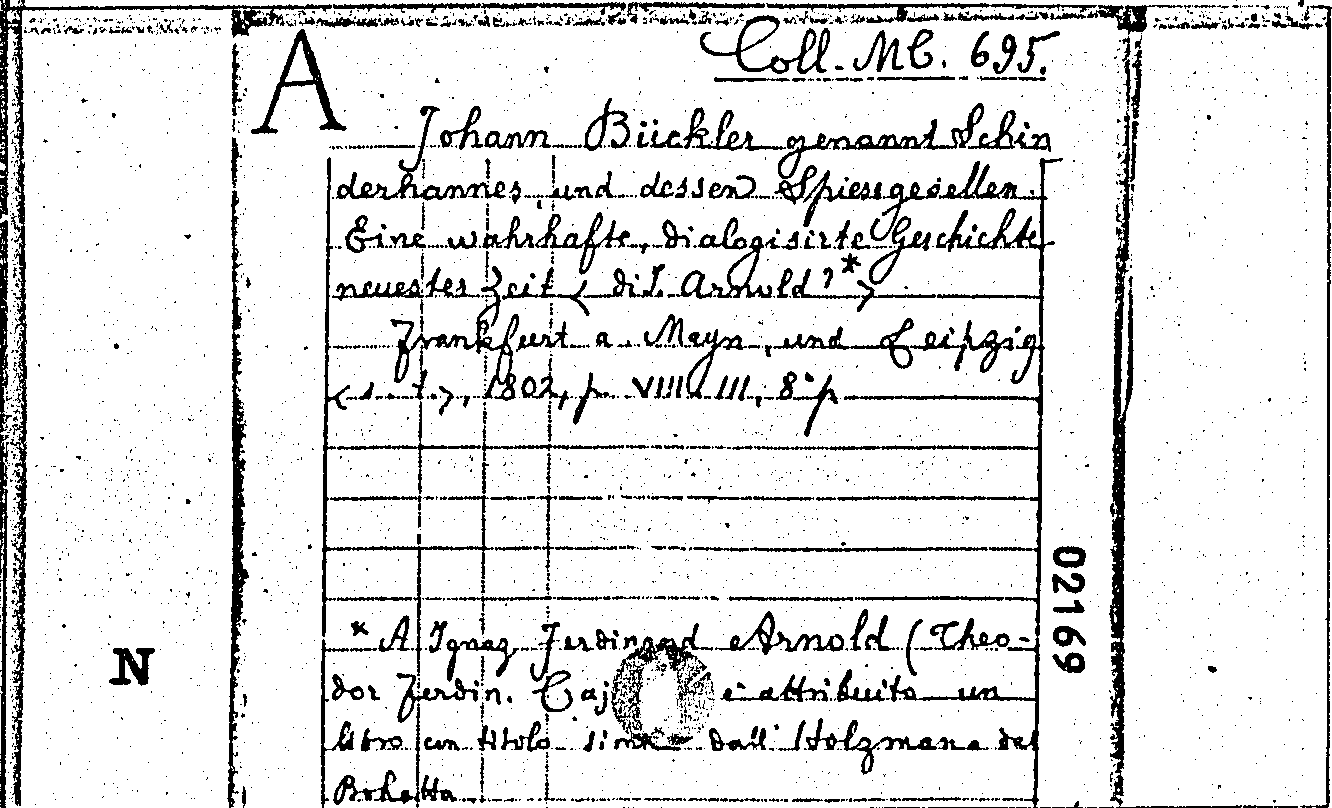 A
Coll. MC. 695.
Johann Bückler genannt Schin
derhannes, und dessen Spiessgesellen.
Eine wahrhafte, dialogisirte Geschichte
neuester Zeit < di I. Arnold?*>
Frankfurt a. Mayn, und Leipzig
< s. t.>, 1802, p. VIII. III, 8° p
02169
* A Ignaz Ferdinand Arnold (Theo-
N
dor Ferdin. Caj e' attribuito un
libro con titolo dall' Holzmann e dal
Bohatta